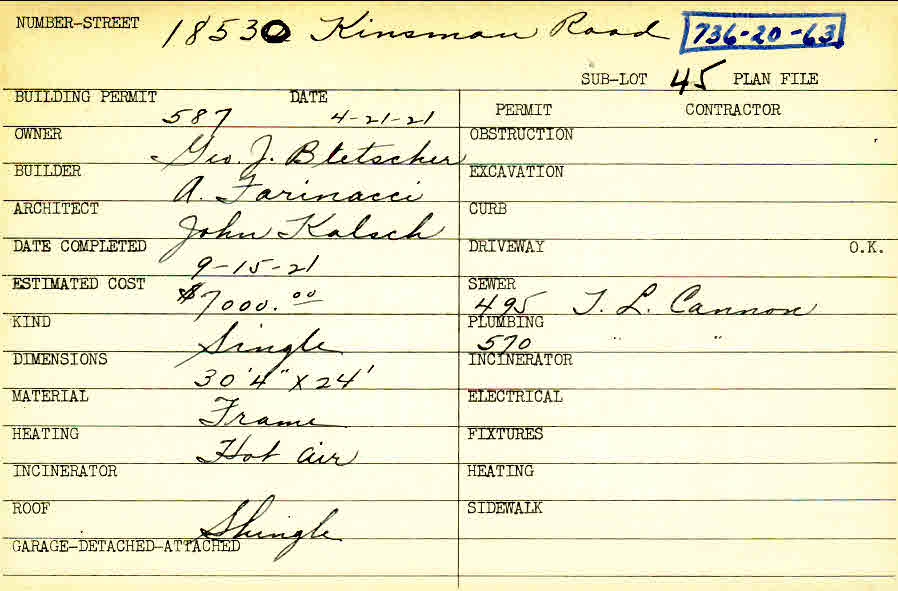 NUMBER-STREET 18530 Kinsman Road 736-20-63
SUB-LOT 45 PLAN FILE
BUILDING PERMIT 587 DATE 4-21-21
OWNER Geo. J. Bletscher
BUILDER A. Farinacci
ARCHITECT John Kalsch
DATE COMPLETED 9-15-21
ESTIMATED COST $7000.00
KIND Single
DIMENSIONS 30'4" X 24'
MATERIAL Frame
HEATING Hot air
INCINERATOR
ROOF Shingle
GARAGE-DETACHED-ATTACHED
PERMIT CONTRACTOR
OBSTRUCTION
EXCAVATION
CURB
DRIVEWAY O.K.
SEWER 495 T. L. Cannon
PLUMBING 570 " "
INCINERATOR
ELECTRICAL
FIXTURES
HEATING
SIDEWALK